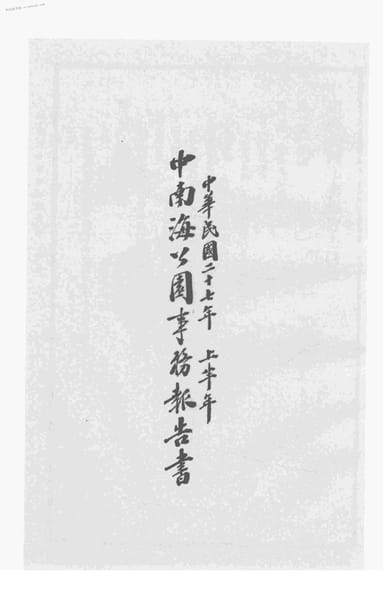 中華民國二十七年 上半年
中南海公園事務報告書